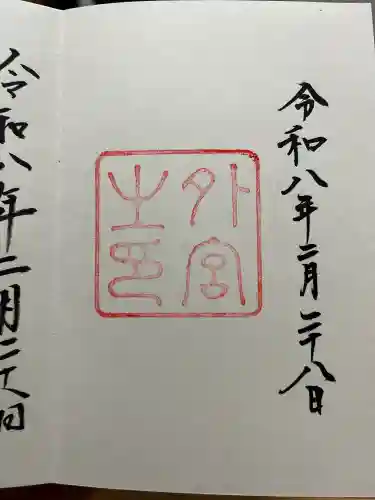 令和八年二月二十八日
外宮
之印
令和八年二月二十八日